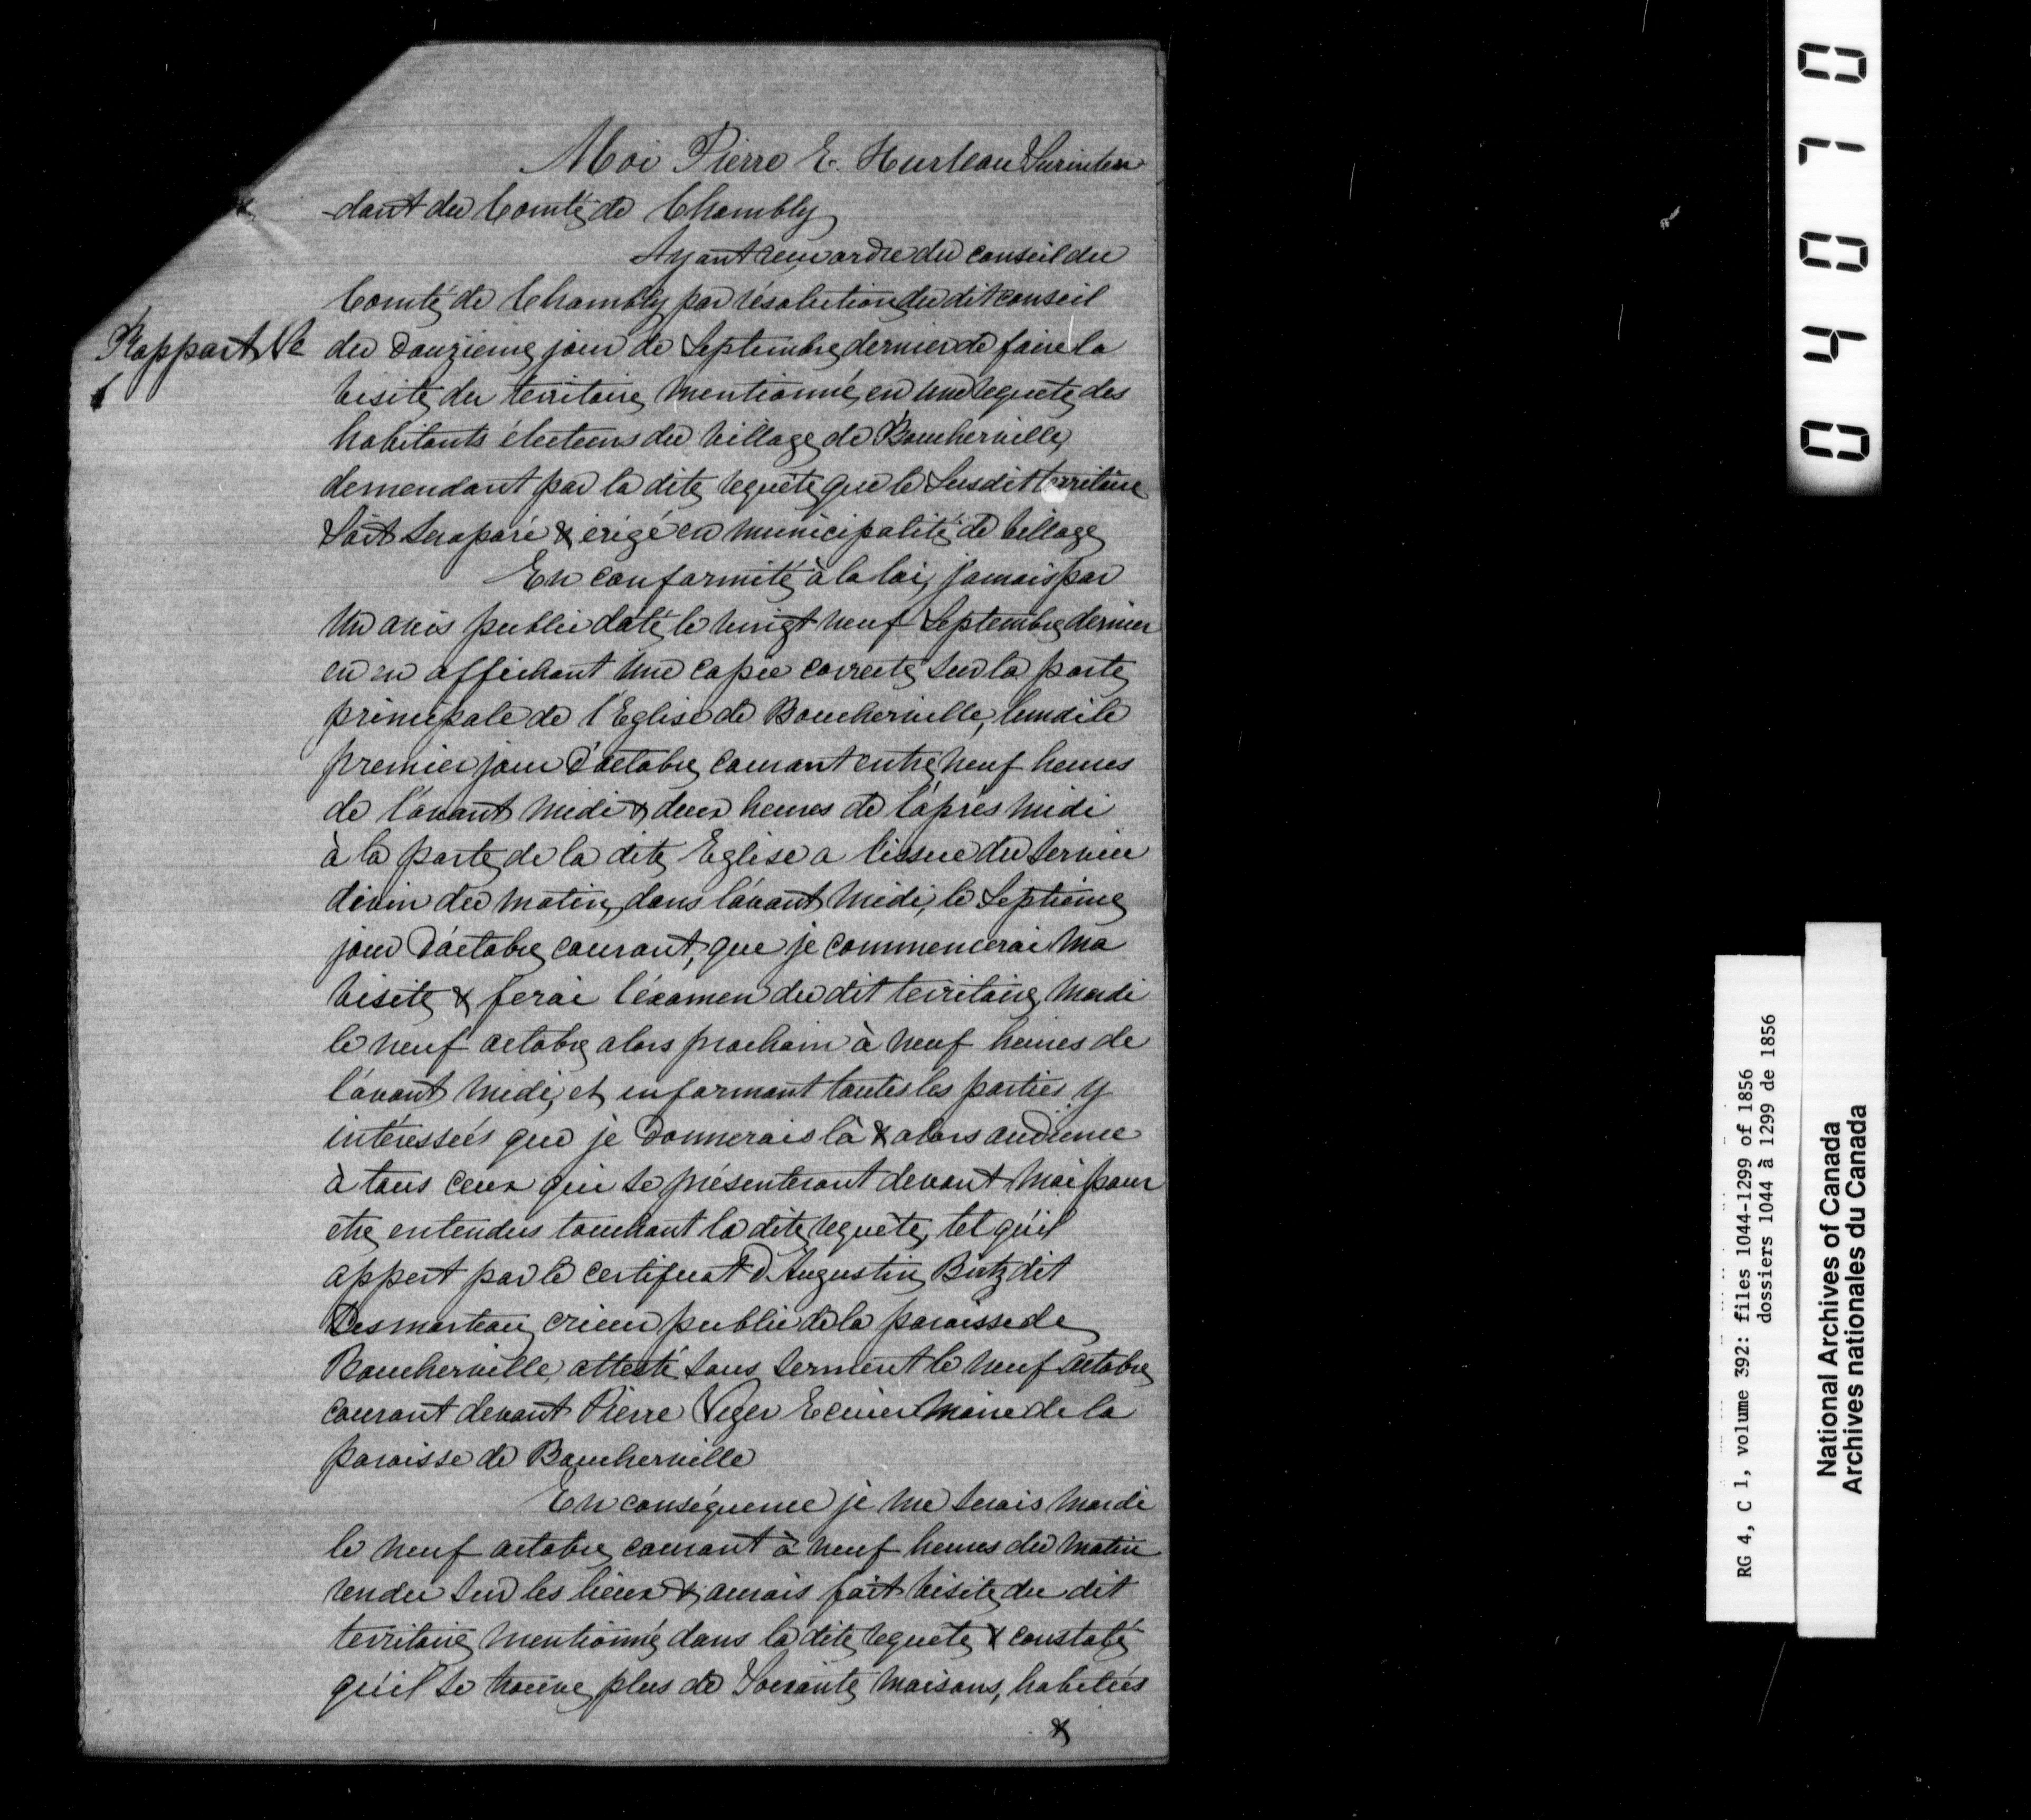 Moi Pierre E. Hurteau Surinten
-dant du Comté de Chambly
Ayant reçu ordre du conseil du
Comté de Chambly par résolution du dit conseil
Rapport &c
du douzieme jour de Septembre dernier de faire la
visite du territoire mentionné en une requete des
habitants électeurs du village de Boucherville,
demendant par la dite requête que le Susdit territoire
Soit Separé & erigé en municipalité de village
En conformité à la loi, j'aurais par
un avis public daté le vingt neuf Septembre dernier
en en affichant une copie correcte sur la porte
principale de l'Eglise de Boucherville, lundi le
premier jour d'octobre courant entre neuf heures
de l'avant midi & deux heures de l'après midi
à la porte de la dite Eglise a l'issue du Service
divin du matin, dans l'avant midi, le Septieme
jour d'octobre courant, que je commencerai ma
visite & ferai l'éxamen du dit territoire, mardi
le neuf octobre alors prochain à neuf heures de
l'avant midi, et informant toutes les parties y
intéressées que je donnerais là & alors audience
à tous ceux qui se présenteront devant moi pour
etre entendus touchant la dite requête, tel qu'il
appert par le certificat d'Augustin Birtz dit
Desmarteau crieur public de la paroisse de
Boucherville attesté sous serment le neuf octobre
courant devant Pierre Viger Ecuier Maire de la
paroisse de Boucherville
En conséquence je me serais mardi
le neuf octobre courant à neuf heures du matin
rendu sur les lieux & aurais fait visite du dit
territoire mentionné dans la dite requete & constaté
qu'il se trouve plus de Soixante maisons, habitées
&
04070
RG 4, C 1, volume 392: files 1044-1299 of 1856
dossiers 1044 à 1299 de 1856
National Archives of Canada
Archives nationales du Canada